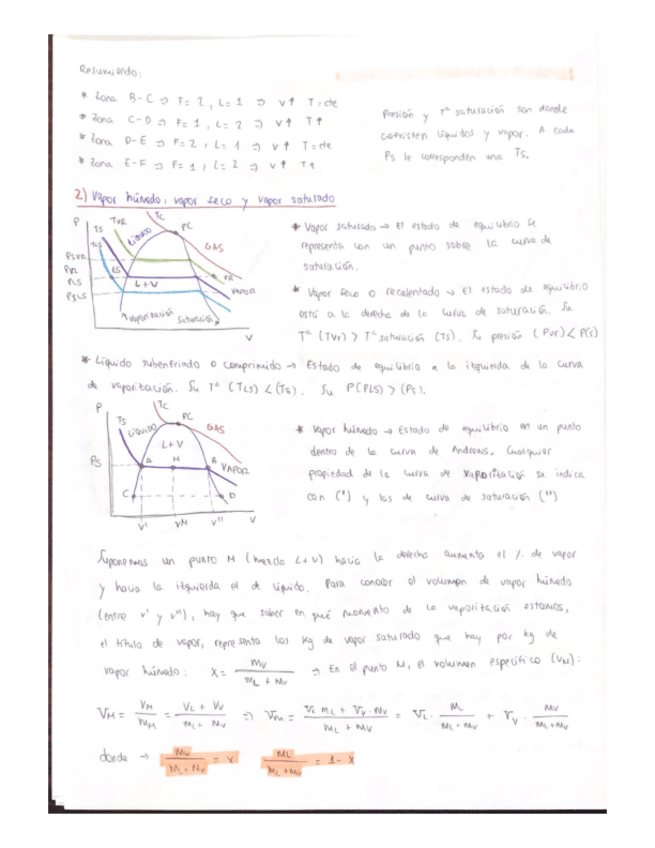 Resumiendo:
* Zona B-C ⇒ F=2, L=1 ⇒ V↑ T=cte
* Zona C-D ⇒ F=1, L=2 ⇒ V↑ T↑
* Zona D-E ⇒ F=2, L=1 ⇒ V↑ T=cte
* Zona E-F ⇒ F=1, L=2 ⇒ V↑ T↑
Presión y Tª saturación son donde
coexisten líquidos y vapor. A cada
Ps le corresponden una Ts.
2) Vapor húmedo, vapor seco y vapor saturado
P TS TVR TC PC
TLS LÍQUIDO GAS
PSVR
PVR LS VR
PLS L+V VAPOR
PSLS
vaporización saturación
V
* Vapor saturado → El estado de equilibrio se
representa con un punto sobre la curva de
saturación.
* Vapor seco o recalentado → El estado de equilibrio
está a la derecha de la curva de saturación. Su
Tª (TVR) > Tª saturación (Ts). Su presión (PVR) < P(s)
* Líquido subenfriado o comprimido → Estado de equilibrio a la izquierda de la curva
de vaporización. Su Tª (TLS) < (Ts). Su P(PLS) > (Ps).
P TC
TS PC
LÍQUIDO GAS
L+V
PS A M B VAPOR
C D
V' VM V'' V
* Vapor húmedo → Estado de equilibrio en un punto
dentro de la curva de Andrews. Cualquier
propiedad de la curva de vaporización se indica
con (') y las de curva de saturación ('')
Suponemos un punto M (mezcla L+V) hacia la derecha aumenta el % de vapor
y hacia la izquierda el de líquido. Para conocer el volumen de vapor húmedo
(entre v' y v''), hay que saber en qué momento de la vaporización estamos,
el título de vapor, representa los kg de vapor saturado que hay por kg de
vapor húmedo: X = mV / (mL + mV) ⇒ En el punto M, el volumen específico (VM):
VM = VM / mM = (VL + VV) / (mL + mV) ⇒ Vm = (VL mL + VV · mV) / (mL + mV) = VL · mL / (mL + mV) + VV · mV / (mL + mV)
donde → mV / (mL + mV) = X mL / (mL + mV) = 1 - X